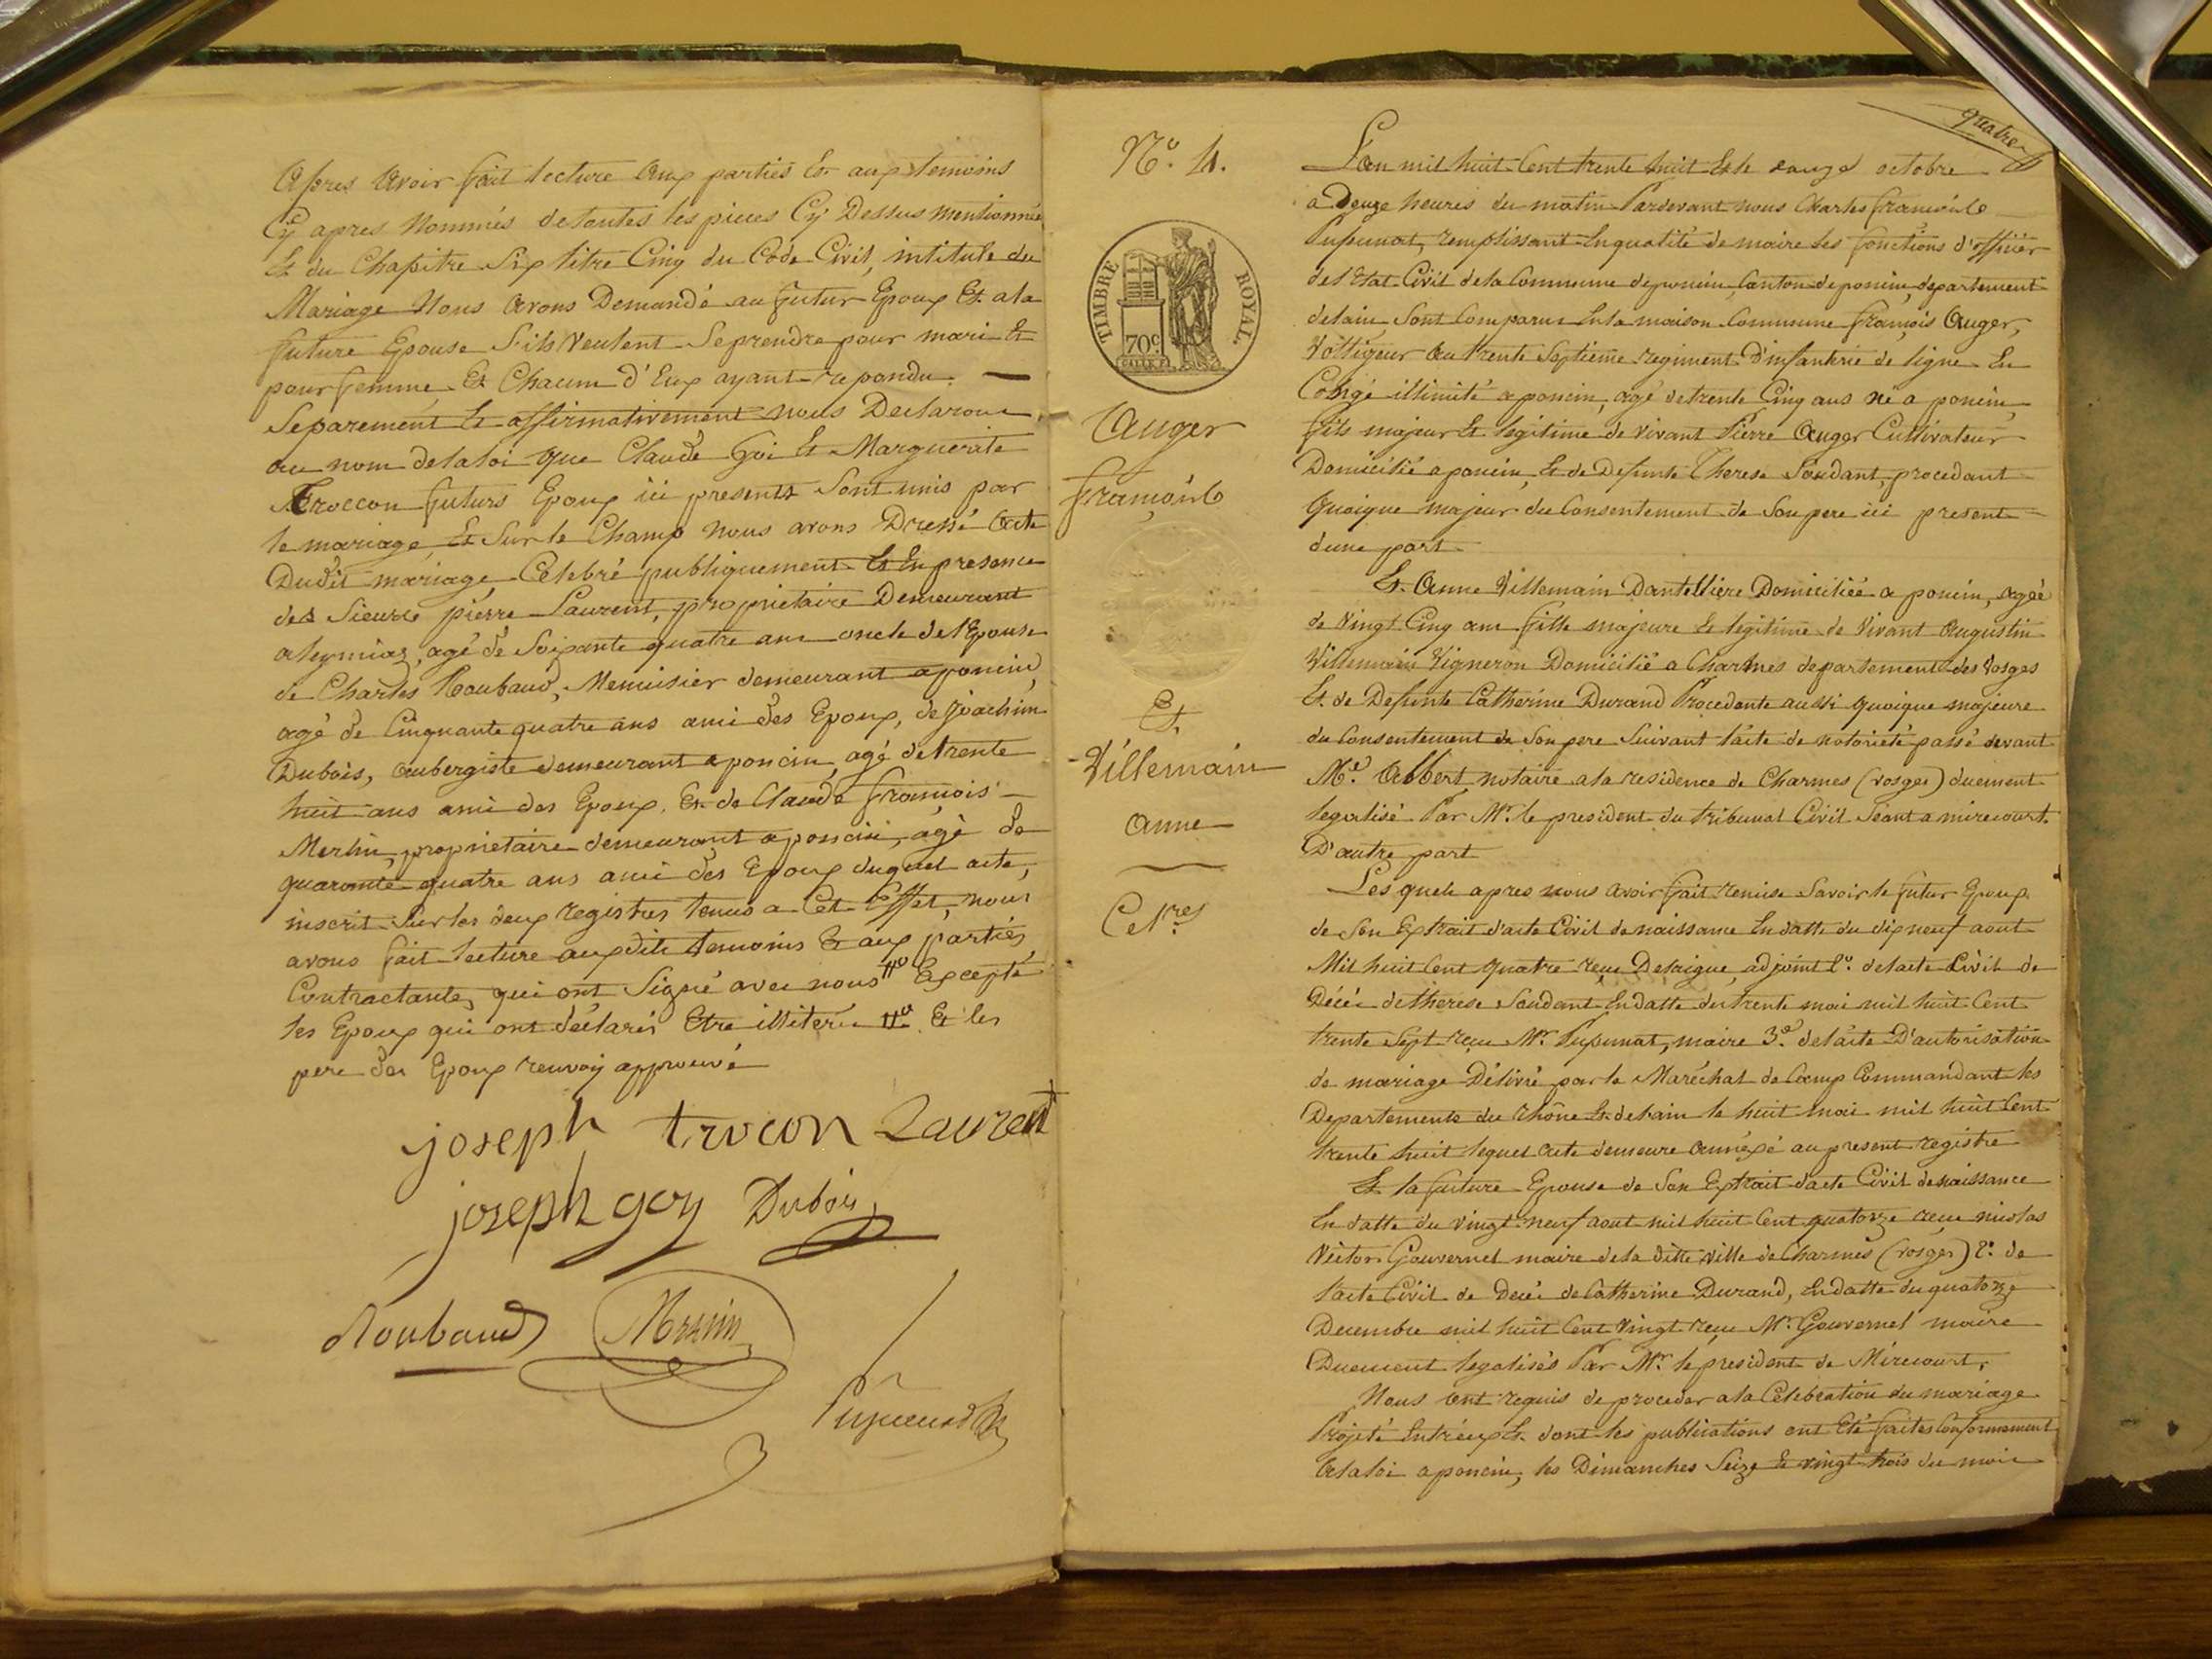 Apres avoir fait lecture aux parties Et aux temoins
Cy apres Nommés de toutes les pieces Cy Dessus mentionnées
Et du Chapitre Six titre Cinq du Code Civil, intitulé du
Mariage Nous avons Demandé au futur Epoux Et a la
future Epouse S'ils Veulent Se prendre pour mari Et
pour femme, Et Chacun d'Eux ayant repondu. —
Separement Et affirmativement nous Declarons
au nom de la loi que Claude Goi Et Marguerite
Troccon futurs Epoux ici presents Sont unis par
le mariage, Et Sur le Champ nous avons Dressé acte
Dudit mariage Célebré publiquement Et En presence
des Sieurs pierre Laurent, proprietaire Demeurant
a leymiaz, agé de Soixante quatre ans oncle de l'Epouse
de Charles Roubaud, Menuisier demeurant a poncin,
agé de Cinquante quatre ans ami des Epoux, de joachim
Dubois, aubergiste demeurant a poncin, agé de trente
huit ans ami des Epoux, Et de Claude françois —
Merlin, proprietaire demeurant a poncin, agé de
quarante quatre ans ami des Epoux duquel acte,
inscrit Sur les deux registres tenus a Cet Effet, nous
avons fait lecture auxdits temoins Et aux parties
Contractantes, qui ont Signé avec nous Excepté
les Epoux qui ont déclarés Etre illiterés Et les
pere des Epoux renvoy approuvé
joseph trocon Laurent
joseph goy Dubois
Roubaud Merlin
quatre
N°. 4.
TIMBRE ROYAL.
70c.
Auger
françois
Et
Villemain
anne
Cel.res
L'an mil huit Cent trente huit Et le onze octobre
a Douze heures du matin Pardevant nous Charles françois
Pupunat, remplissant En qualité de maire les fonctions d'officier
de l'Etat Civil de la Commune de poncin, Canton de poncin, departement
de l'ain Sont Comparus En la maison Commune françois Auger,
Voltigeur au trente Septieme regiment D'infantrie de ligne En
Congé illimité a poncin, agé de trente Cinq ans né a poncin,
fils majeur Et legitime de vivant Pierre Auger Cultivateur
Domicilié a poncin, Et de Defunte Therese Soudant, procedant
quoique majeur du Consentement de Son pere ici present
d'une part.
Et Anne Villemain Dantellière Domiciliée a poncin, agée
de Vingt Cinq ans fille majeure Et legitime de vivant Augustin
Villemain Vigneron Domicilié a Charmes departement des Vosges
Et de Defunte Catherine Durand Procedante aussi quoique majeure
du Consentement de Son pere Suivant l'acte de notorieté passé devant
Me. Albert, notaire a la residence de Charmes (vosges) duement
legalisé Par Mr. le president du tribunal Civil Séant a mirecourt.
D'autre part
Lesquels apres nous avoir fait remise Savoir le futur Epoux
de Son Extrait d'acte Civil de naissance En datte du dix neuf aout
Mil huit Cent quatre reçu Delaigue, adjoint 2°. de l'acte Civil de
Décés de therese Soudant En datte du trente mai mil huit Cent
trente Sept reçu Mr. Pupunat, maire 3°. de l'acte D'autorisation
de mariage Délivré par le Maréchal de Camp Commandant les
Departements du rhône Et de l'ain le huit mai mil huit Cent
trente huit lequel acte demeure annéxé au present registre
Et la future Epouse de Son Extrait d'acte Civil de naissance
En datte du vingt neuf aout mil huit Cent quatorze reçu nicolas
Victor Gouvernel maire de la ditte Ville de Charmes (vosges) 2°. de
l'acte Civil de Décés de Catherine Durand, En datte du quatorze
Decembre mil huit Cent Vingt reçu Mr. Gouvernel maire
Duement legalisés Par Mr. le president de Mirecourt.
Nous ont requis de proceder a la Célebration du mariage
Projeté Entr'eux Et dont les publications ont Eté faites Conformement
a la loi a poncin, les Dimanches Seize Et vingt trois du mois